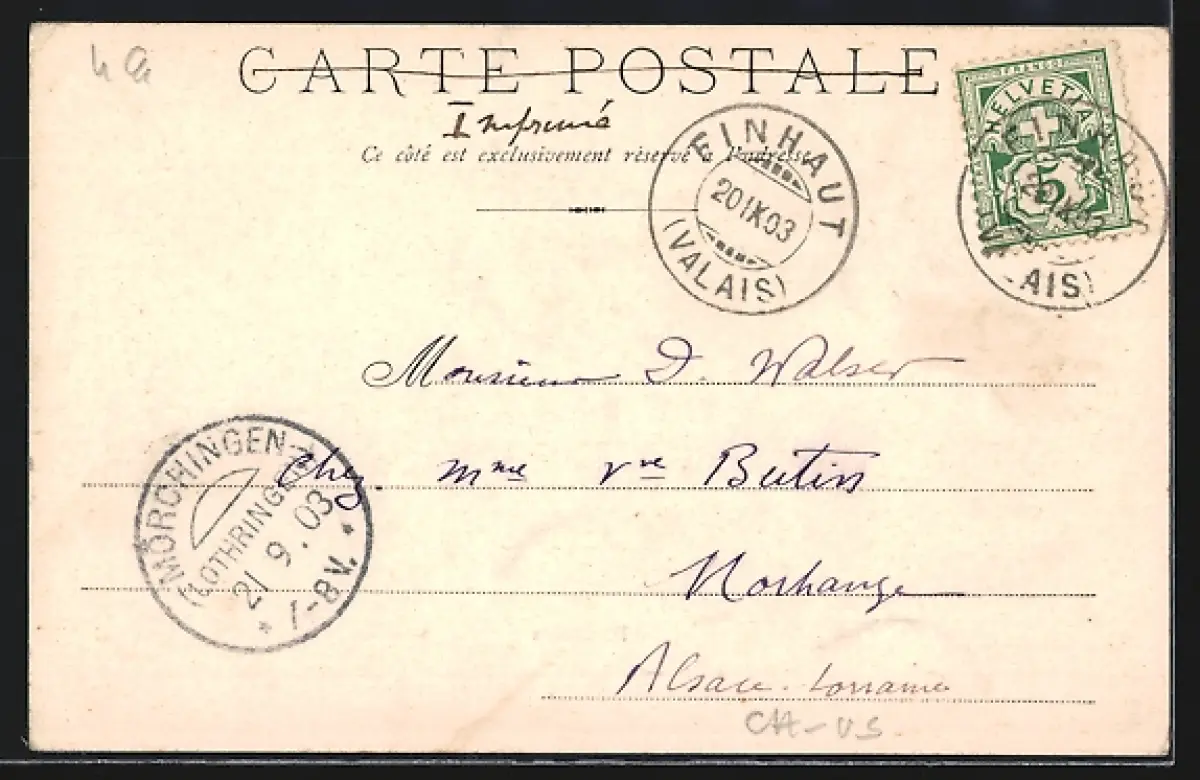 CARTE POSTALE
Imprimé
Ce côté est exclusivement réservé à l'adresse
FINHAUT
20 IX 03
(VALAIS)
FRANCO
HELVETIA
5
AIS)
Monsieur D. Walser
chez mme vve Butin
Morhange
Alsace-Lorraine
MÖRCHINGEN
(LOTHRINGEN)
21 9. 03
7-8 V.
CH-VS